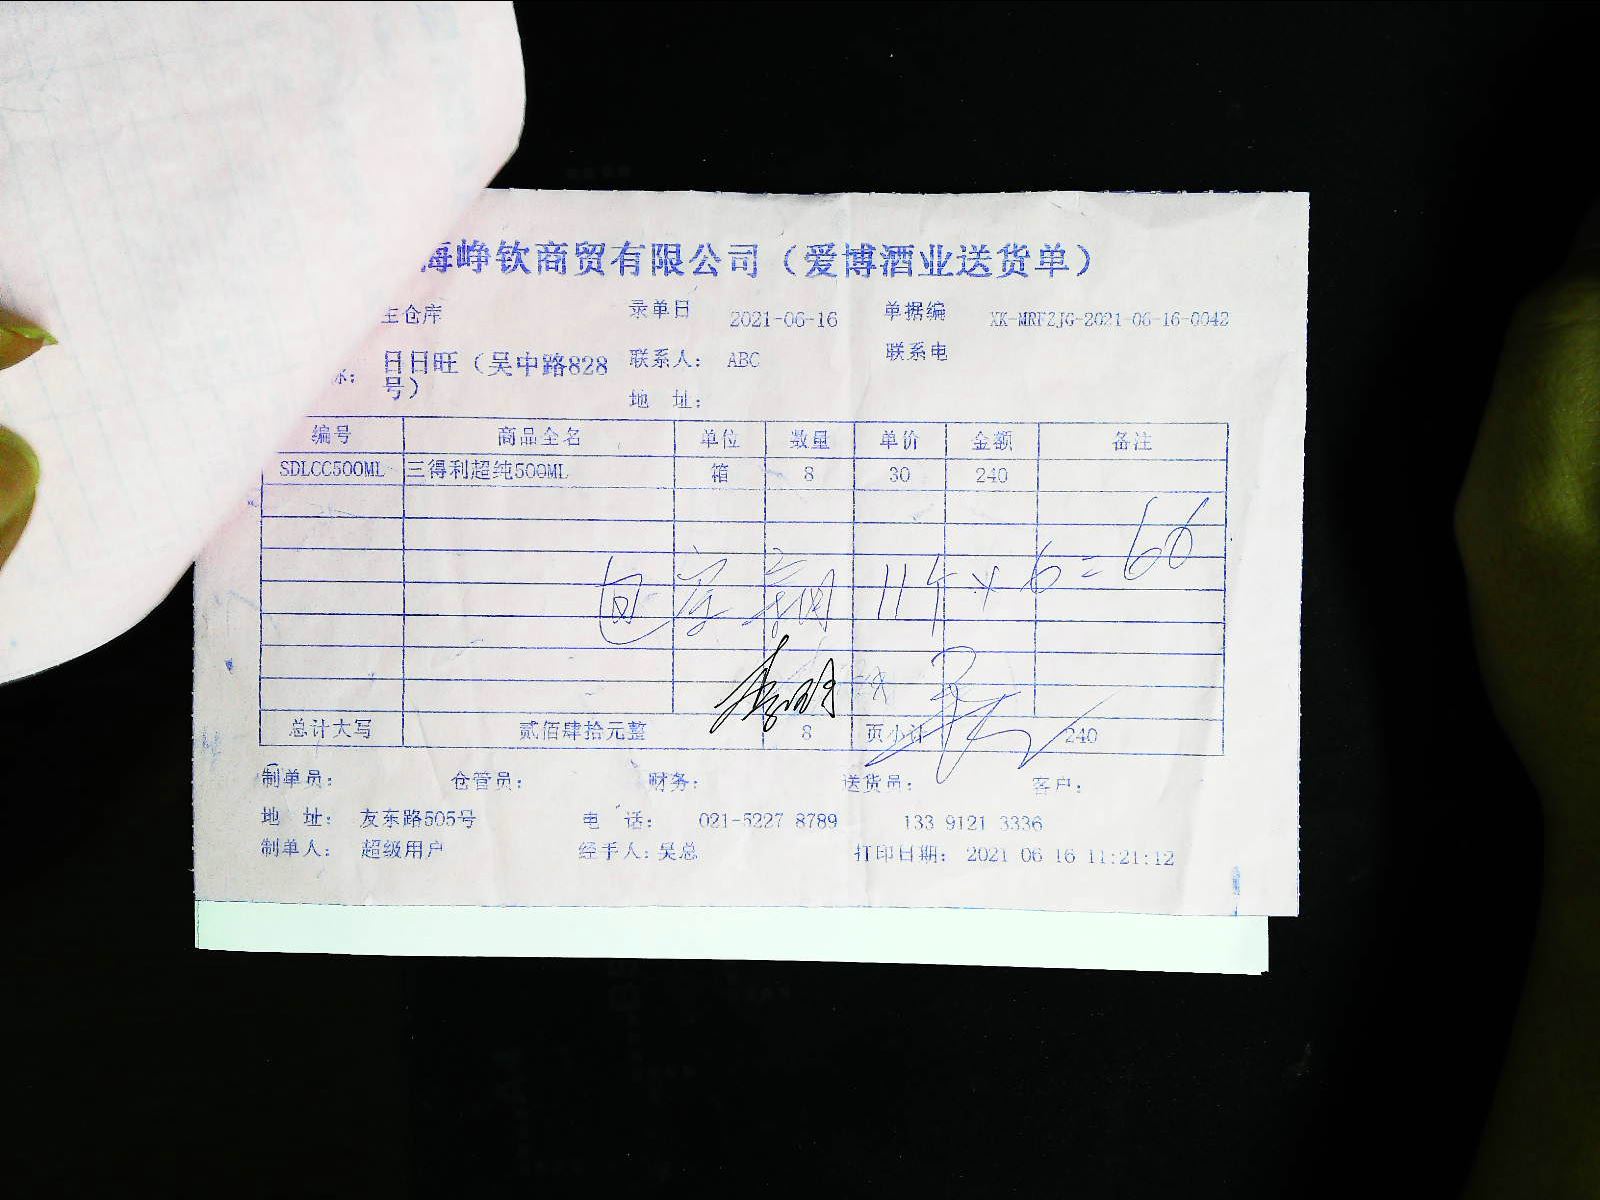 海峥钦商贸有限公司（爱博酒业送货单）
主仓库 录单日 2021-06-16 单据编 XK-MRFZJG-2021-06-16-0042
日日旺（吴中路828号） 联系人： ABC 联系电
地 址：
编号 商品全名 单位 数量 单价 金额 备注
SDLCC500ML 三得利超纯500ML 箱 8 30 240
11 × 6 = 66
总计大写 贰佰肆拾元整 8 页小计 240
制单员： 仓管员： 财务： 送货员： 客户：
地 址： 友东路505号 电 话： 021-5227 8789 133 9121 3336
制单人： 超级用户 经手人：吴总 打印日期： 2021 06 16 11:21:12